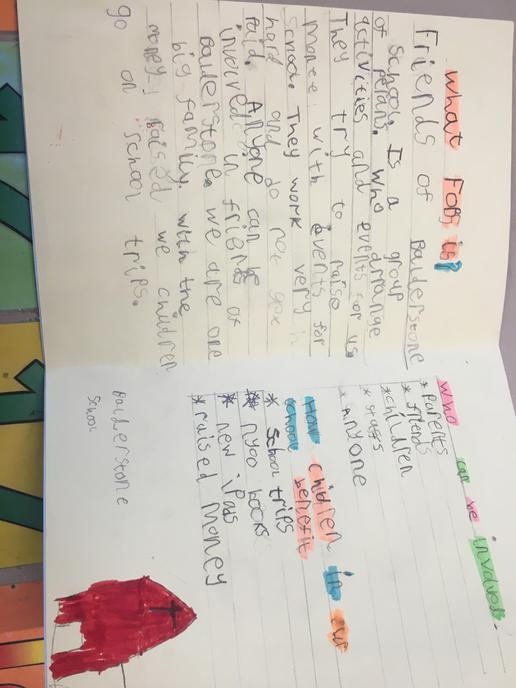 what FoBs is?
Friends of Balderstone
of School. Is a group
of perans. who arrange
activities and events for us
They try to raise
monte. with events for
school. They work very
hard and do not get
paid. Anyone can be
involved in friends of
Balderstone. we are one
big family. with the
money raised we children
go on school trips.
who can be involved.
* Parents
* friends
* children
* staffs
* Anyone
How children in our
school benefit
* School trips
* nyoo books
* new iPads
* raised money
Balderstone
School